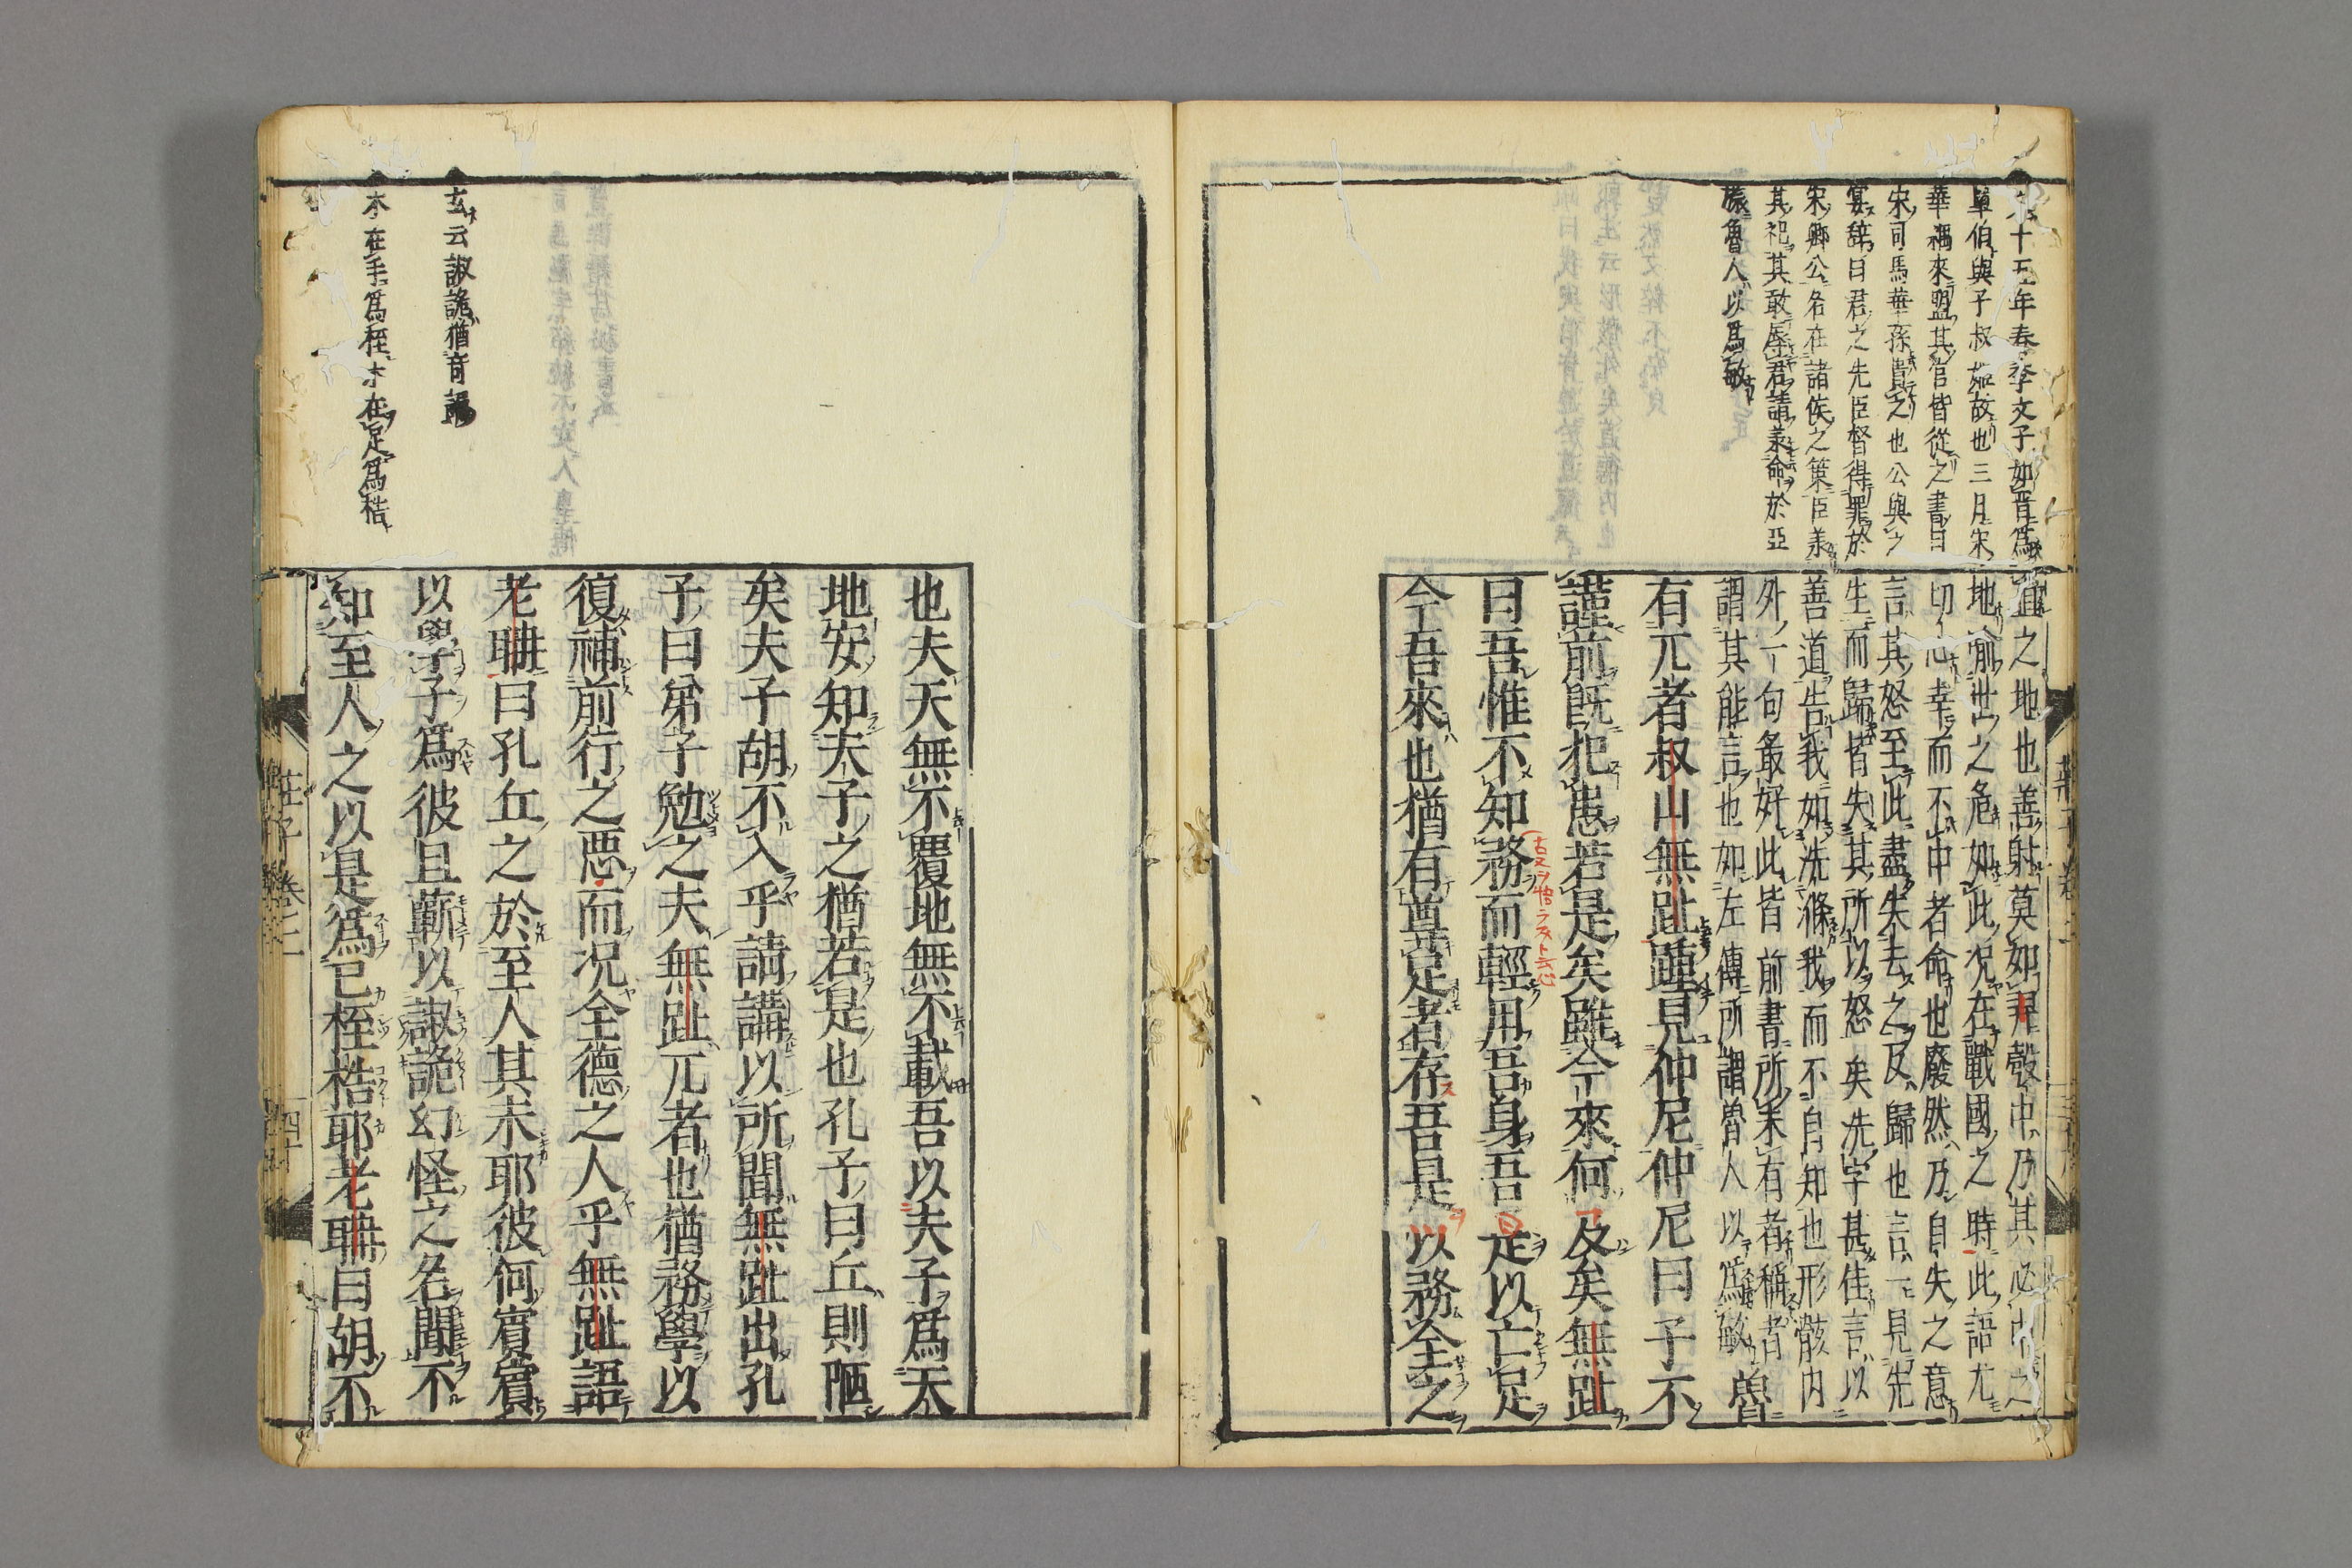 十五年春季文子如晋爲
單伯與子叔姬故也三月宋
華耦來盟其官皆從之書曰
宋司馬華孫貴之也公與之
宴辭曰君之先臣督得罪於
宋殤公名在諸侯之策臣承
其祀其敢辱君請承命於亞
旅魯人以爲敏
之地也善射莫如羿彀中乃其必中之
地喻世之危如此况在戰國之時此語尤
切心幸而不中者命也廢然乃自失之意
言其怒至此盡失去之反歸也言一見先
生而歸皆失其所以怒矣洗字甚佳言以
善道告我如洗滌我而不自知也形骸内
外一句最好此皆前書所未有者稱者
謂其能言也如左傳所謂魯人以爲敏魯
有兀者叔山無趾踵見仲尼仲尼曰子不
謹前既犯患若是矣雖今來何及矣無趾
曰吾惟不知務而輕用吾身吾是以亡足
今吾來也猶有尊足者存吾是以務全之
玄云諔詭猶奇譎
木在手爲桎木在足爲梏
也夫天無不覆地無不載吾以夫子爲天
地安知夫子之猶若是也孔子曰丘則陋
矣夫子胡不入乎請講以所聞無趾出孔
子曰弟子勉之夫無趾兀者也猶務學以
復補前行之惡而况全德之人乎無趾語
老聃曰孔丘之於至人其未耶彼何賓賓
以學子爲彼且蘄以諔詭幻怪之名聞不
知至人之以是爲己桎梏耶老聃曰胡不
莊子 卷二
四十